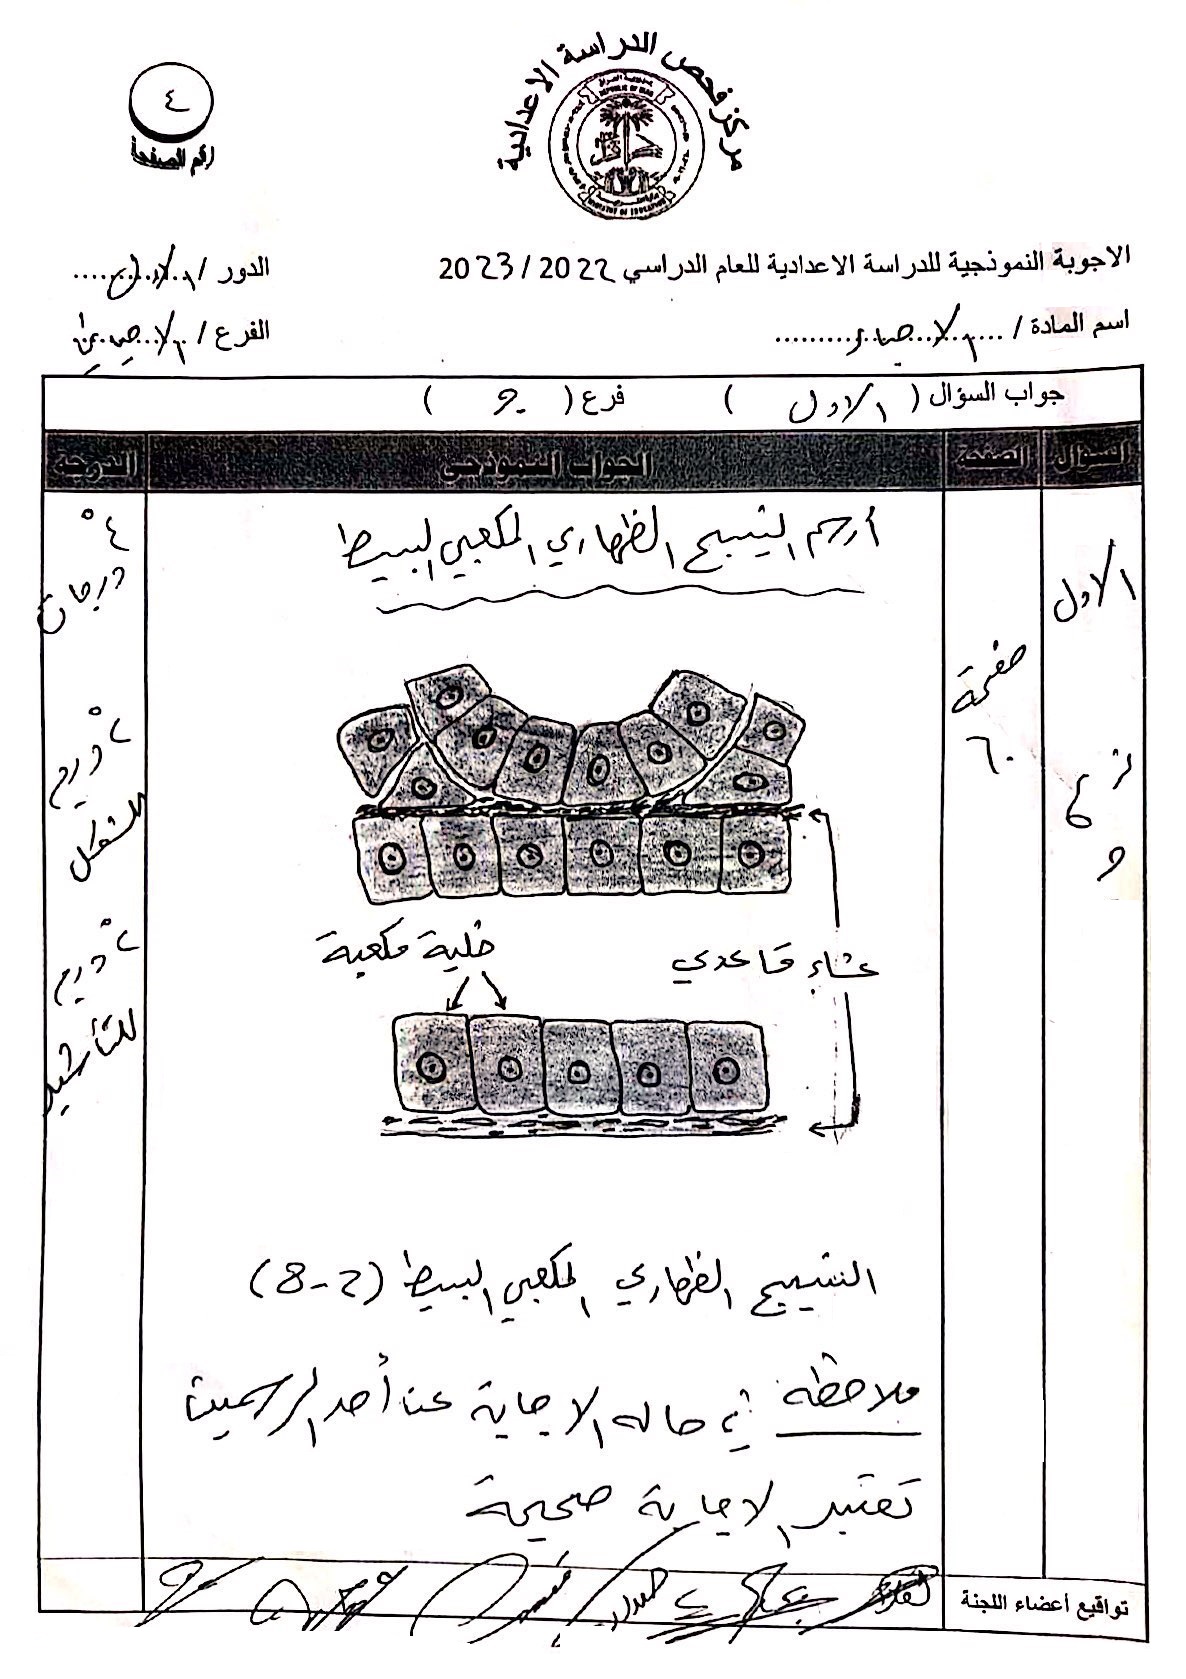 مركز فحص الدراسة الاعدادية
REPUBLIC OF IRAQ
MINISTRY OF EDUCATION
٤
رقم الصفحة
الاجوبة النموذجية للدراسة الاعدادية للعام الدراسي 2022 / 2023
الدور / الاول
اسم المادة / الاحياء
الفرع / الاحيائي
جواب السؤال ( الاول ) فرع ( جـ )
السؤال
الصفحة
الجواب النموذجي
الدرجة
أرسم النسيج الظهاري المكعبي البسيط
الاول
فرع
صفحة
٦٠
٤
درجات
٢ درجة
للشكل
٢ درجة
للتأشير
غشاء قاعدي
خلية مكعبة
النسيج الظهاري المكعبي البسيط (2-8)
ملاحظة في حالة الاجابة عن أحد الرسمين
تعتبر الاجابة صحيحة
تواقيع أعضاء اللجنة